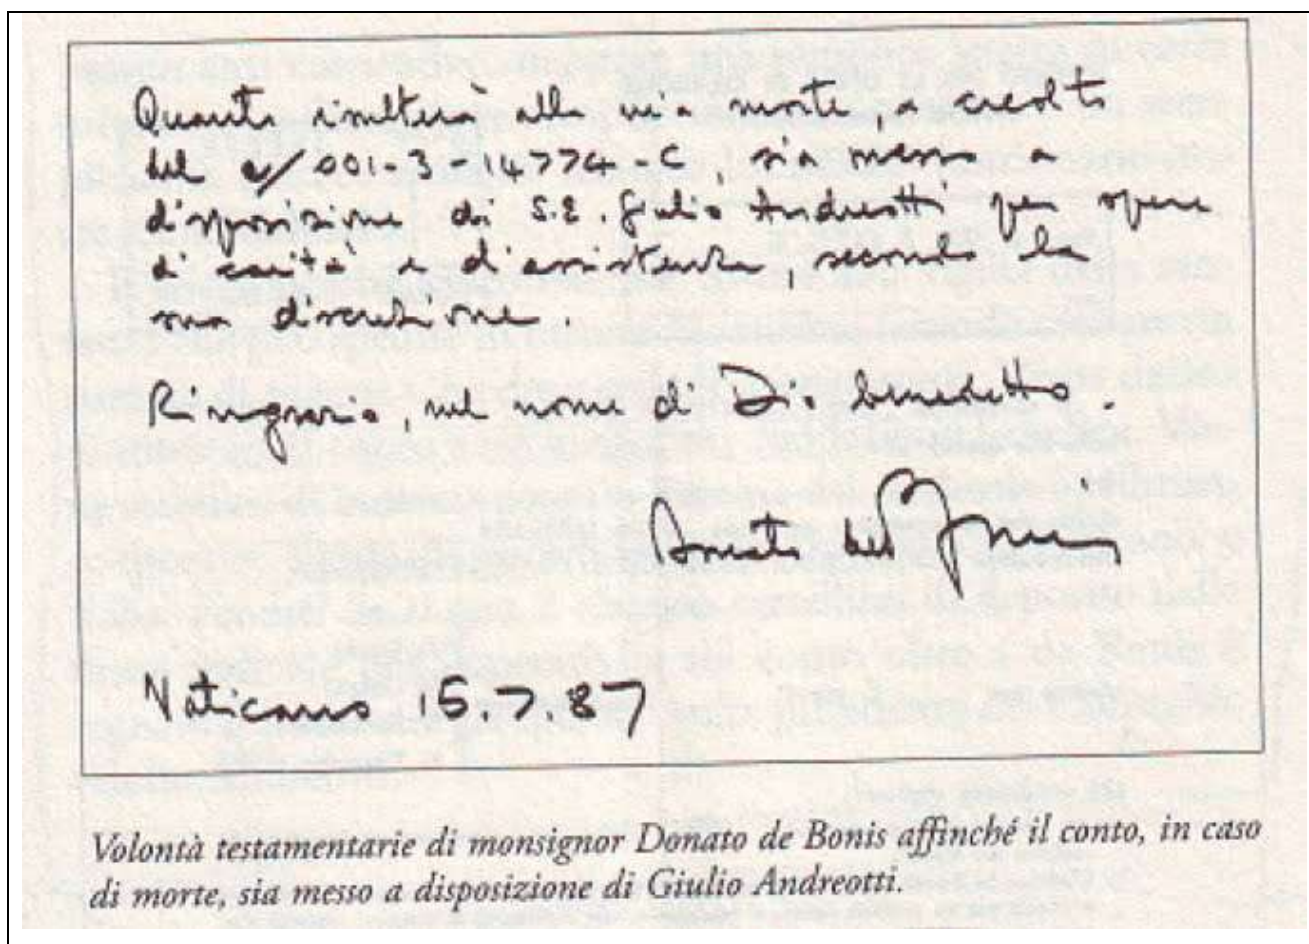 Quanto risulterà alla mia morte, a credito
del c/001-3-14774-C, sia messo a
disposizione di S.E. Giulio Andreotti per opere
di carità e d'assistenza, secondo la
sua discrezione.
Ringrazio, nel nome di Dio benedetto.
Donato de Bonis
Vaticano 15.7.87
Volontà testamentarie di monsignor Donato de Bonis affinché il conto, in caso
di morte, sia messo a disposizione di Giulio Andreotti.